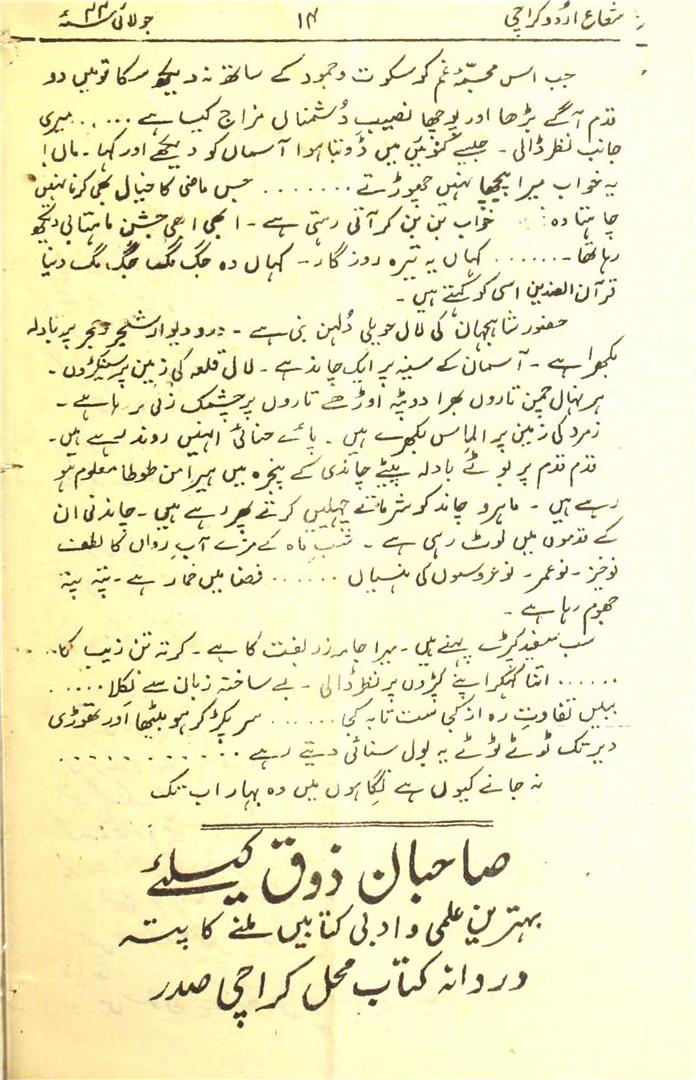 شعاع اردو کراچی ۱۴ جولائی ۴۴ سنہ
جب اس مجسمۂ غم کو سکوت و جمود کے ساتھ نہ دیکھ سکا تو میں دو
قدم آگے بڑھا اور پوچھا نصیبِ دُشمناں مزاج کیسا ہے ..... میری
جانب نظر ڈالی ۔ جیسے کنویں میں ڈوبتا ہوا آسماں کو دیکھے اور کہا ۔ ماں!
یہ خواب میرا پیچھا نہیں چھوڑتے ....... جس ماضی کا خیال بھی کرنا نہیں
چاہتا وہ ... خواب بن بن کر آتی رہتی ہے ۔ ابھی ابھی جشن ماہتابی دیکھ
رہا تھا ۔ ...... کہاں یہ تیرہ روزگار ۔ کہاں وہ جگ مگ جگ مگ دنیا
قرآن الضدین اسی کو کہتے ہیں ۔
حضور شاہجہان کی لال حویلی دُلہن بنی ہے ۔ درو دیوار شجر و حجر پر بادلہ
بکھرا ہے ۔ آسمان کے سینہ پر ایک چاند ہے ۔ لال قلعہ کی زمین پر سینکڑوں ۔
ہر نہال چمن تاروں بھرا دوپٹہ اوڑھے تاروں پر چشمک زنی کر رہا ہے ۔
زمرد کی زمین پر الماس بکھرے ہیں ۔ پائے حنائی انہیں روند رہے ہیں ۔
قدم قدم پر بوٹے بادلہ لپیٹے چاندی کے پنجرہ میں ہیرامن طوطا معلوم ہو
رہے ہیں ۔ ماہرو چاند کو شرماتے چہلیں کرتے پھر رہے ہیں ۔ چاندنی ان
کے قدموں میں لوٹ رہی ہے ۔ شب ماہ کے مزے آبِ رواں کا لطف
نوخیز ۔ نو عمر ۔ نوعروسوں کی ہنسیاں ...... فضا میں خمار ہے ۔ پتہ پتہ
جھوم رہا ہے ۔
سب سفید کپڑے پہنے ہیں ۔ میرا جامہ زر بفت کا ہے ۔ کرتہ تن زیب کا ..
...... اتنا کہکر اپنے کپڑوں پر نظر ڈالی ۔ بے ساختہ زبان سے نکلا .....
ببیں تفاوتِ رہ از کجا ست تا بہ کجا ...... سر پکڑ کر ہو بیٹھا اور تھوڑی
دیر تک ٹوٹے ٹوٹے یہ بول سنائی دیتے رہے ...........
نہ جانے کیوں ہے نگاہوں میں وہ بہار اب تک
صاحبان ذوق کیلئے
بہترین علمی و ادبی کتابیں ملنے کا پتہ
دردانہ کتاب محل کراچی صدر